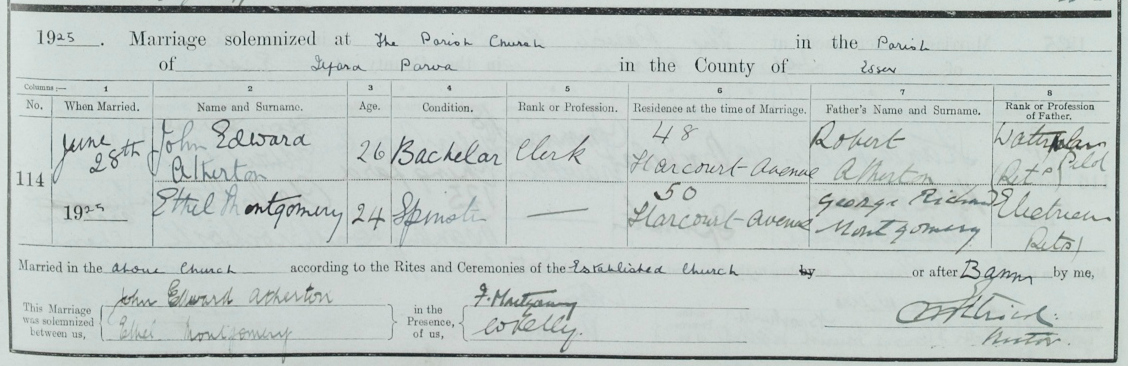 1925. Marriage solemnized at The Parish Church in the Parish
of Parva in the County of Essex
Columns:— 1 2 3 4 5 6 7 8
No. When Married. Name and Surname. Age. Condition. Rank or Profession. Residence at the time of Marriage. Father's Name and Surname. Rank or Profession of Father.
114 June 28th 1925 John Edward Atherton 26 Bachelor Clerk 48 Harcourt Avenue Robert Atherton
Ethel Montgomery 24 Spinster — 50 Harcourt Avenue George Richard Montgomery Electrician
Married in the above Church according to the Rites and Ceremonies of the Established Church by or after Banns by me,
This Marriage was solemnized between us, John Edward Atherton Ethel Montgomery in the Presence of us, F. Montgomery